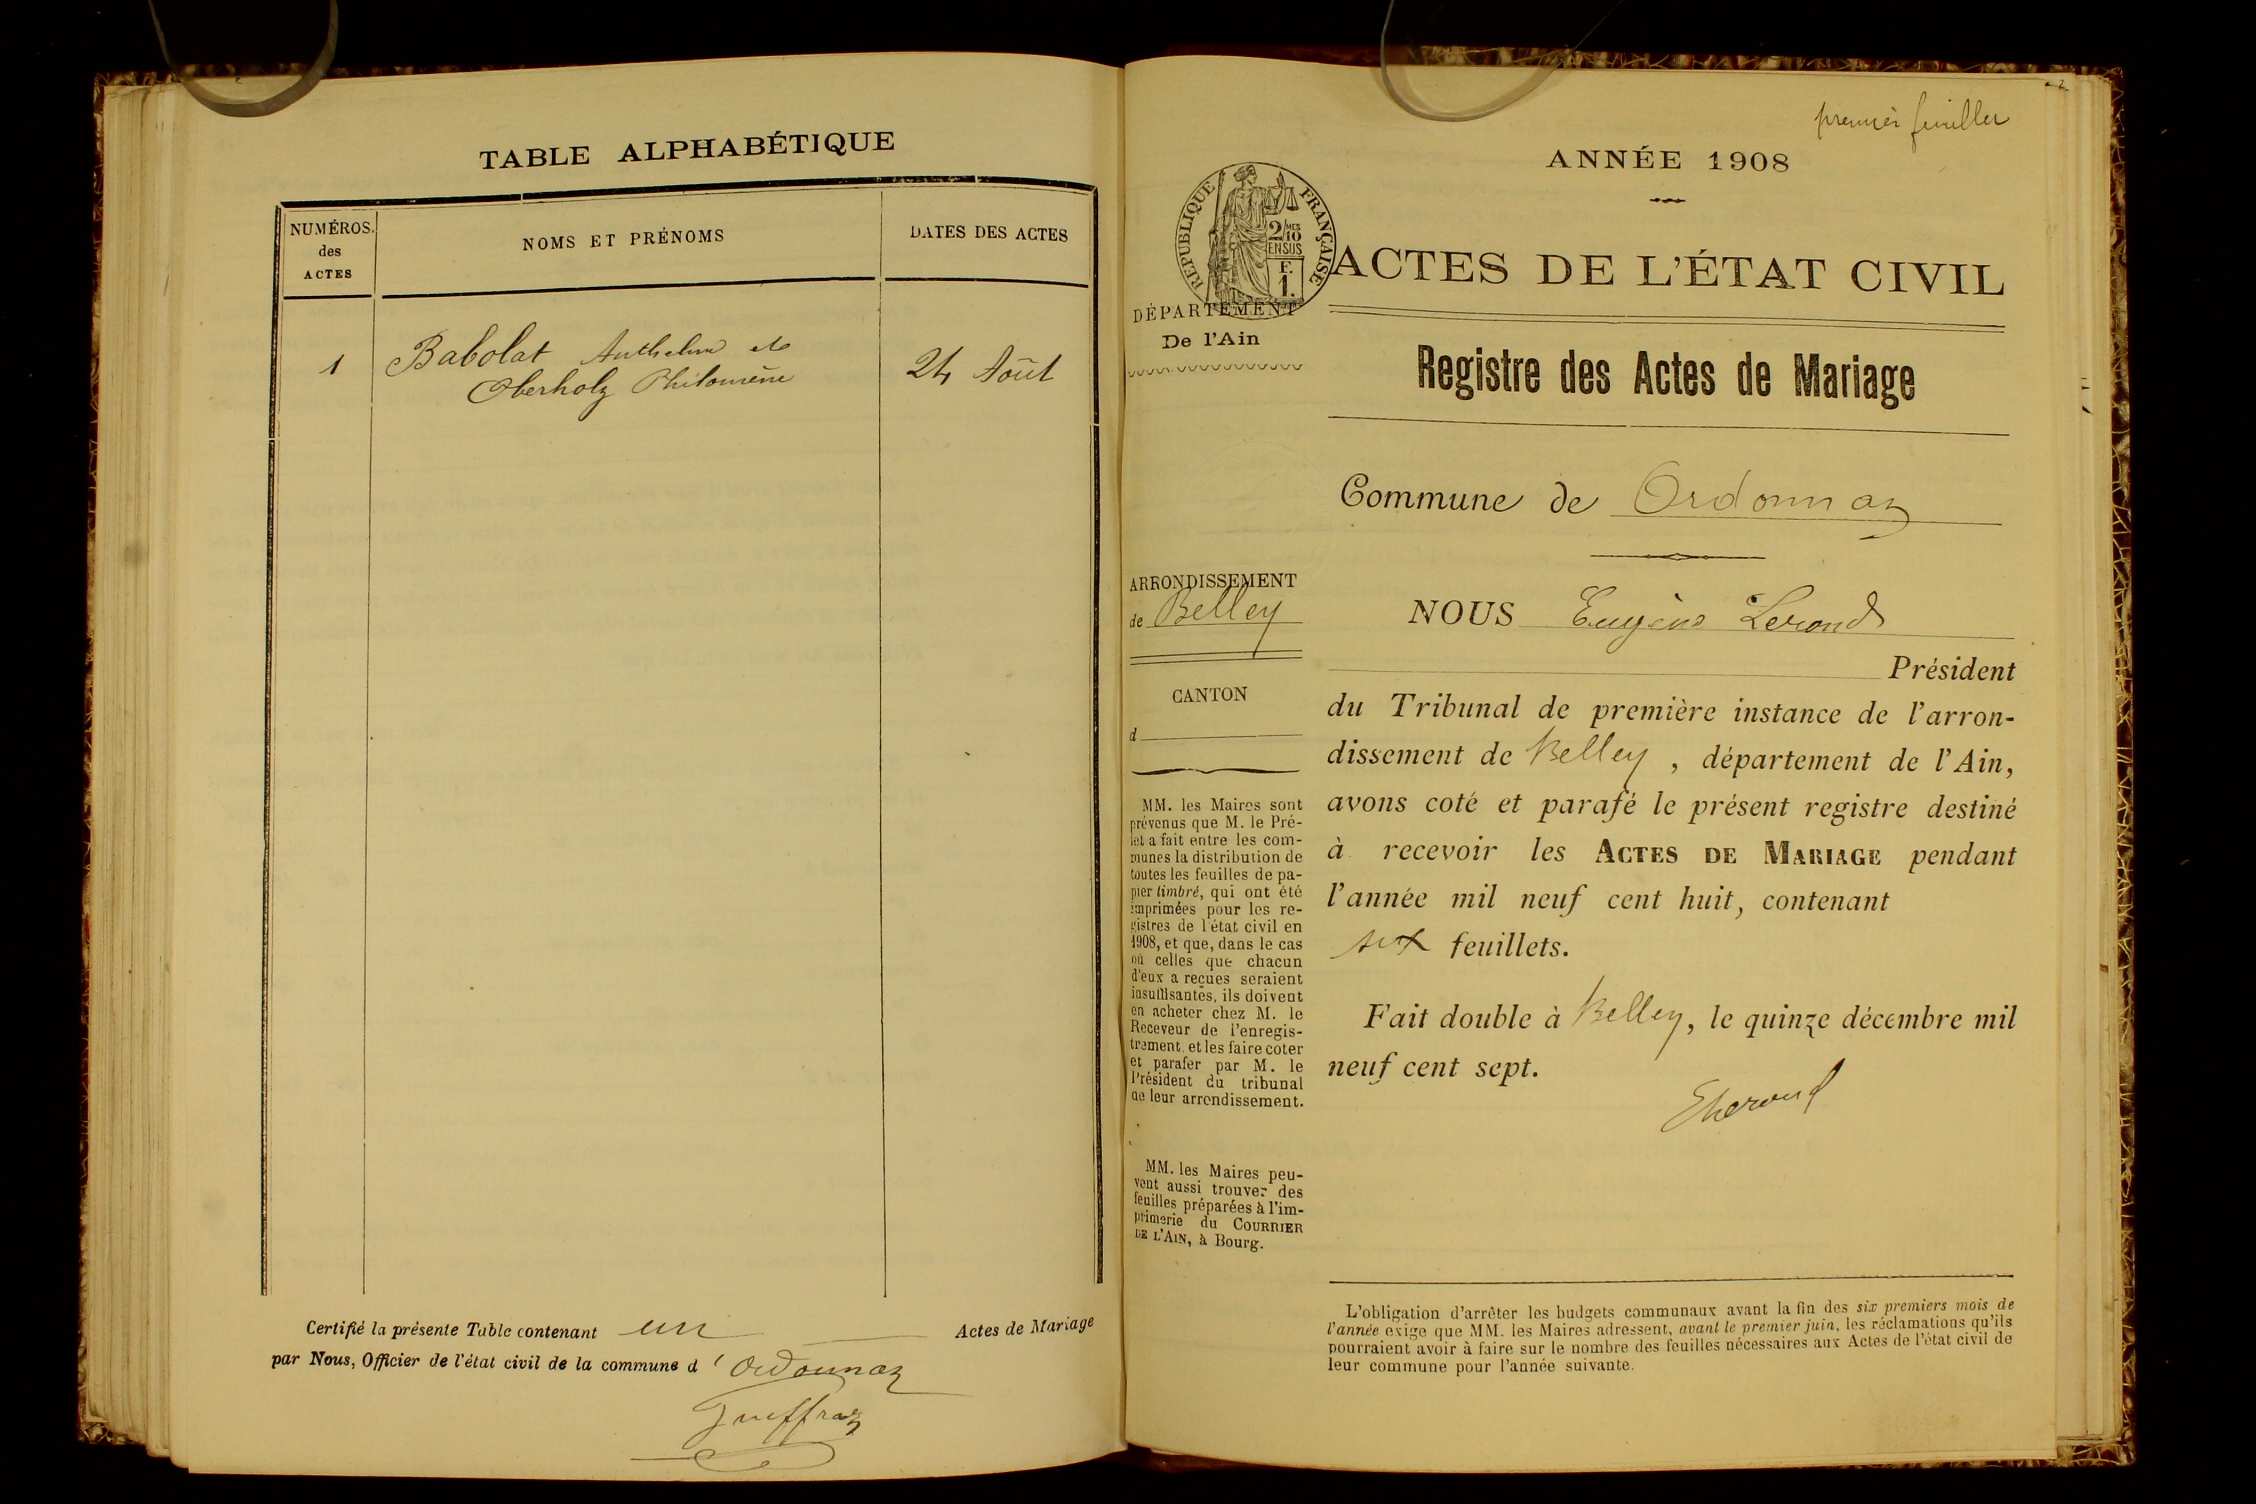 TABLE ALPHABÉTIQUE
NUMÉROS.
des
ACTES
NOMS ET PRÉNOMS
DATES DES ACTES
1
Babolat Anthelme et
Oberholz Philomène
24 Août
Certifié la présente Table contenant un Actes de Mariage
par Nous, Officier de l'état civil de la commune d'Ordonnaz
premier feuillet
ANNÉE 1908
RÉPUBLIQUE FRANÇAISE
2/10 MES
EN SUS
F.
1.
ACTES DE L'ÉTAT CIVIL
DÉPARTEMENT
De l'Ain
Registre des Actes de Mariage
Commune de Ordonnaz
ARRONDISSEMENT
de Belley
CANTON
d
MM. les Maires sont
prévenus que M. le Pré-
fet a fait entre les com-
munes la distribution de
toutes les feuilles de pa-
pier timbré, qui ont été
imprimées pour les re-
gistres de l'état civil en
1908, et que, dans le cas
où celles que chacun
d'eux a reçues seraient
insuffisantes, ils doivent
en acheter chez M. le
Receveur de l'enregis-
trement, et les faire coter
et parafer par M. le
Président du tribunal
de leur arrondissement.
MM. les Maires peu-
vent aussi trouver des
feuilles préparées à l'im-
primerie du COURRIER
DE L'AIN, à Bourg.
NOUS Eugène Lerond
Président
du Tribunal de première instance de l'arron-
dissement de Belley, département de l'Ain,
avons coté et parafé le présent registre destiné
à recevoir les ACTES DE MARIAGE pendant
l'année mil neuf cent huit, contenant
six feuillets.
Fait double à Belley, le quinze décembre mil
neuf cent sept.
ELerond
L'obligation d'arrêter les budgets communaux avant la fin des six premiers mois de
l'année exige que MM. les Maires adressent, avant le premier juin, les réclamations qu'ils
pourraient avoir à faire sur le nombre des feuilles nécessaires aux Actes de l'état civil de
leur commune pour l'année suivante.